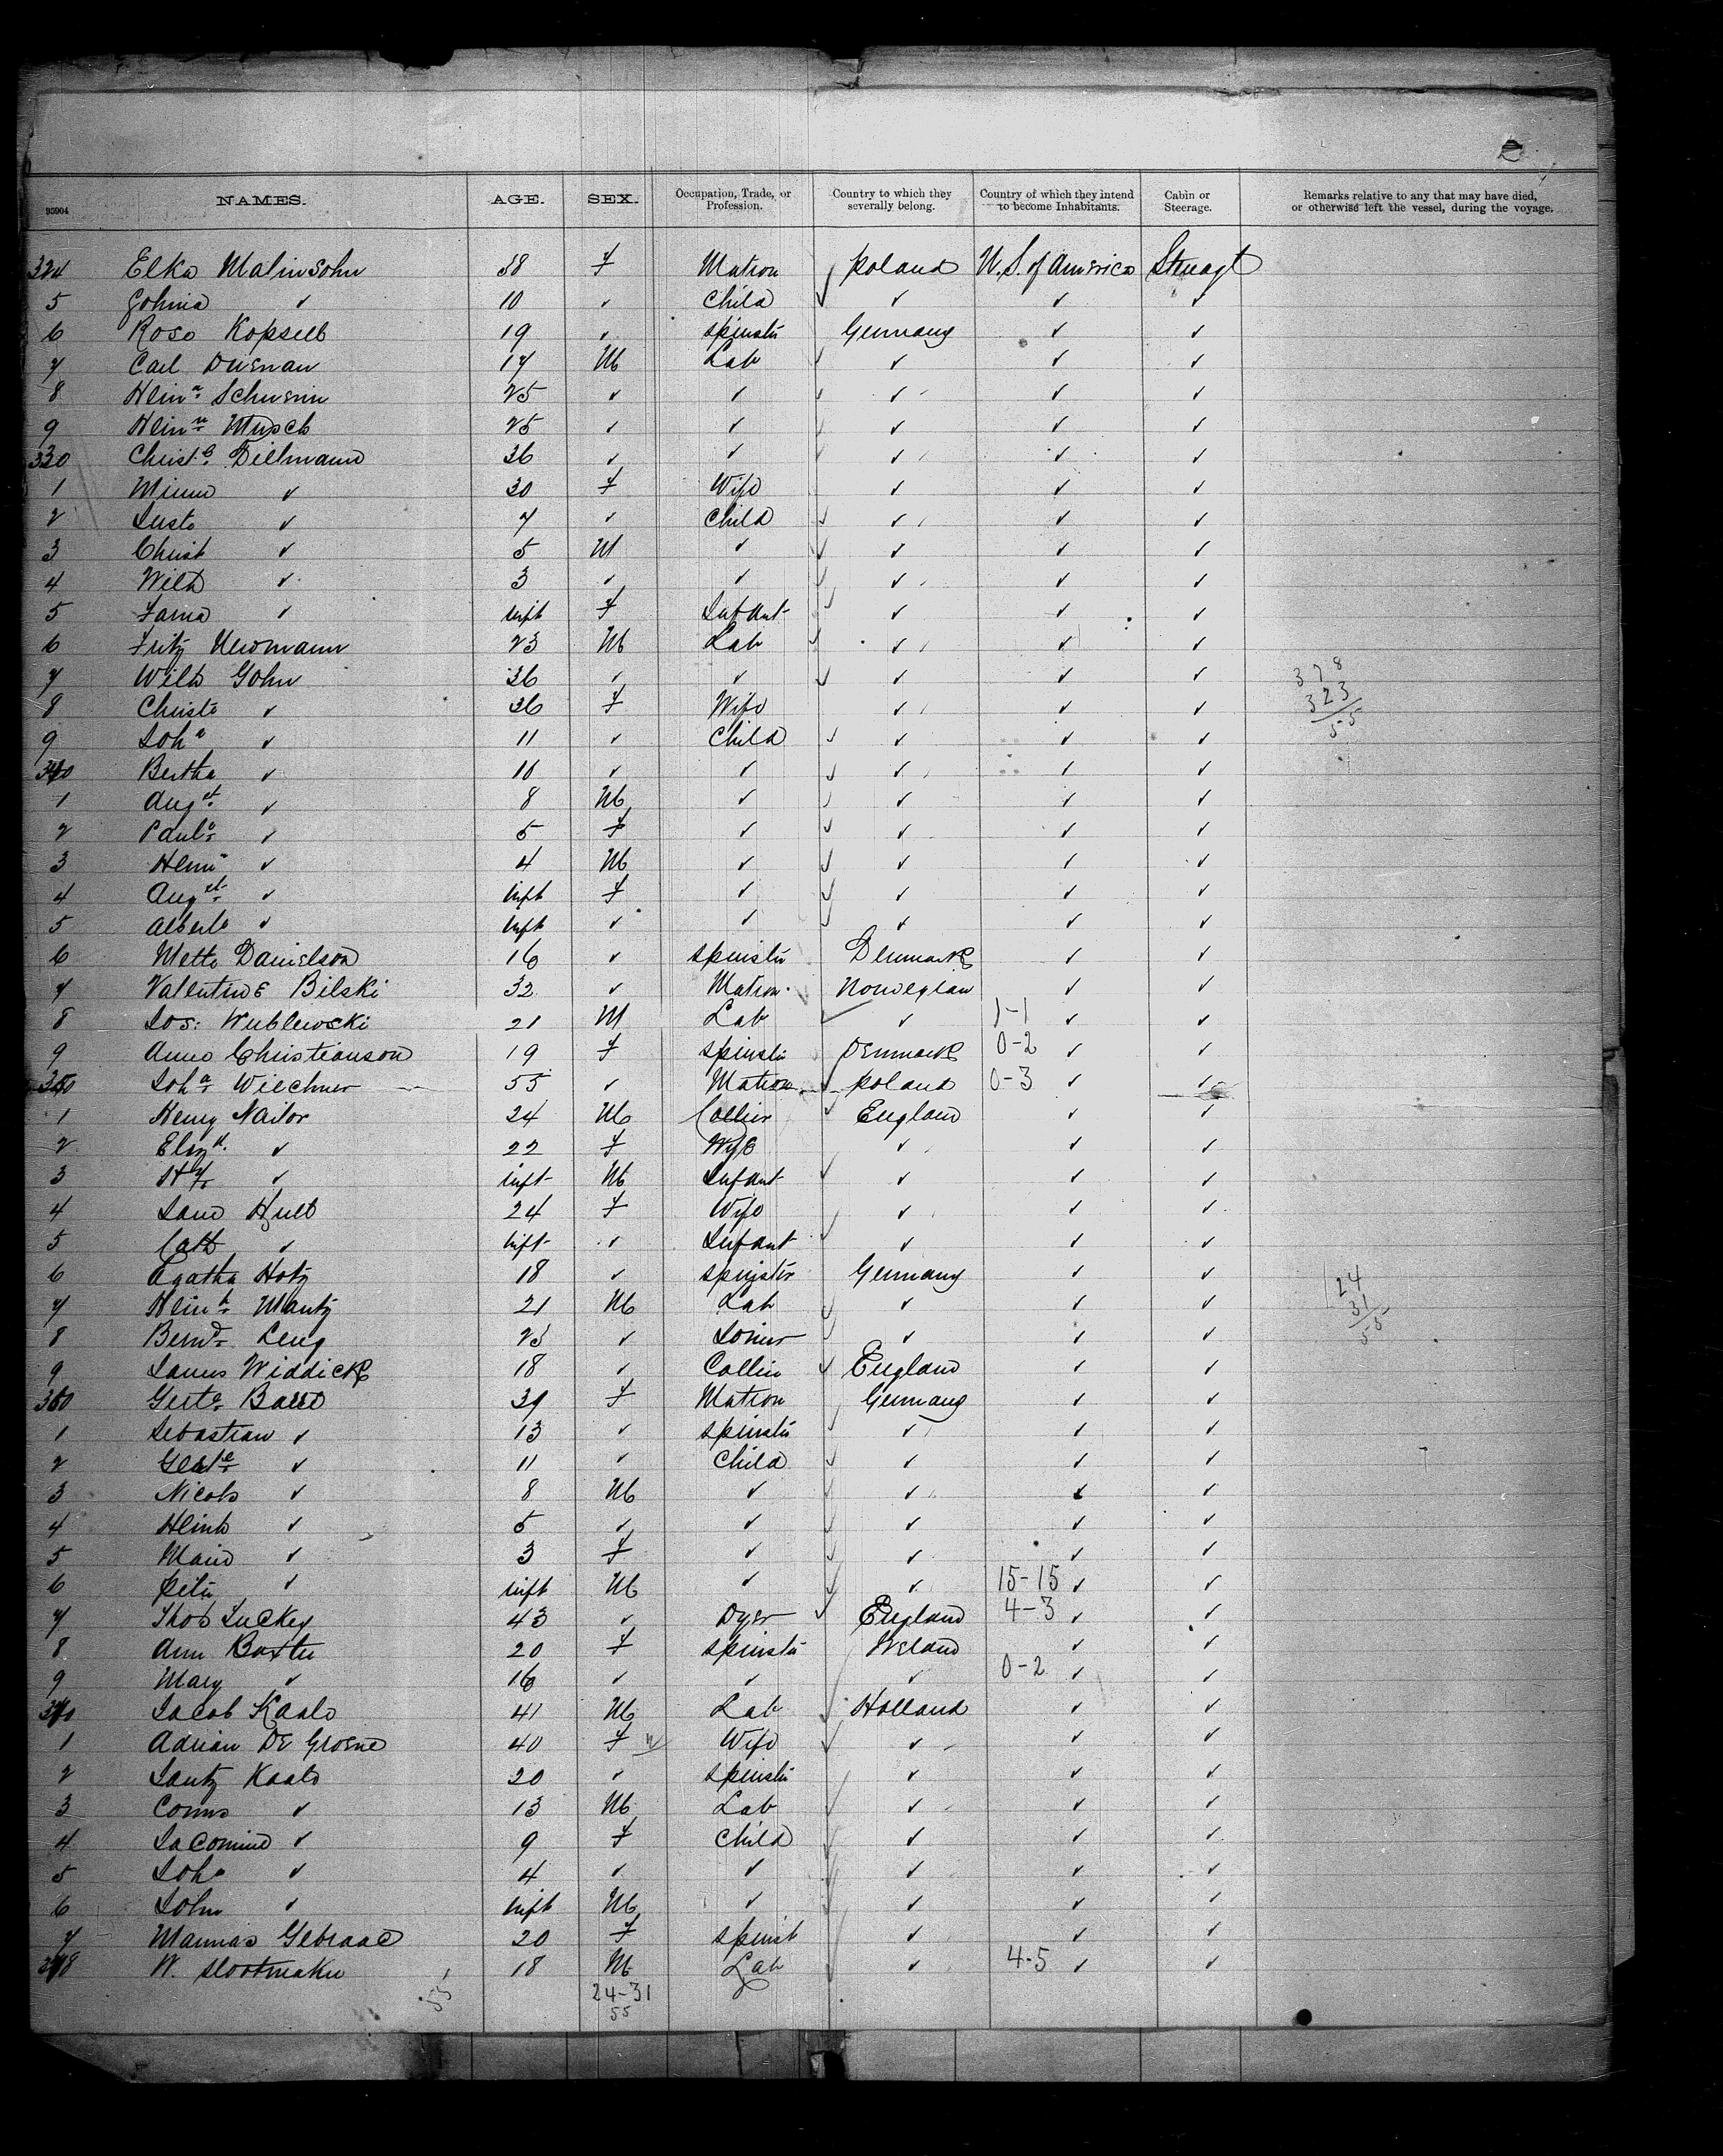 95904 NAMES. AGE. SEX. Occupation, Trade, or Profession. Country to which they severally belong. Country of which they intend to become Inhabitants. Cabin or Steerage. Remarks relative to any that may have died, or otherwise left the vessel, during the voyage.
324 Elka Malinsohn 38 F Matron Poland U.S. of America Steerage
5 ✓ 10 ✓ Child ✓ ✓ ✓
6 Rosa 19 ✓ Spinster Germany ✓ ✓
7 Carl 17 M Lab ✓ ✓ ✓
8 Hein Schwerin 25 ✓ ✓ ✓ ✓ ✓
9 Hein 25 ✓ ✓ ✓ ✓ ✓
330 Christ Dillmann 36 ✓ ✓ ✓ ✓ ✓
1 Minna ✓ 30 F Wife ✓ ✓ ✓
2 ✓ 7 ✓ Child ✓ ✓ ✓
3 Christ ✓ 5 M ✓ ✓ ✓ ✓
4 Wilh ✓ 3 ✓ ✓ ✓ ✓ ✓
5 ✓ Inft F Infant ✓ ✓ ✓
6 Fritz Newmann 23 M Lab ✓ ✓ ✓
7 Wilh Gohn 36 ✓ ✓ ✓ ✓ ✓
378
323
55
8 Christe ✓ 36 F Wife ✓ ✓ ✓
9 Joha ✓ 11 ✓ Child ✓ ✓ ✓
340 Bertha ✓ 10 ✓ ✓ ✓ ✓ ✓
1 Augst ✓ 8 M ✓ ✓ ✓ ✓
2 Paule ✓ 5 F ✓ ✓ ✓ ✓
3 Henri ✓ 4 M ✓ ✓ ✓ ✓
4 Augst ✓ Inft F ✓ ✓ ✓ ✓
5 ✓ Inft ✓ ✓ ✓ ✓ ✓
6 Mette Danielson 16 ✓ Spinster Denmark ✓ ✓
7 Valentine Bilski 32 ✓ Matron Norwegian ✓ ✓
8 Jos: Wublewski 21 M Lab ✓ 1-1 ✓ ✓
9 Anne Christianson 19 F Spinster Denmark 0-2 ✓ ✓
350 Joha Wiechner 55 ✓ Matron Poland 0-3 ✓ ✓
1 Henry Nailor 24 M Collier England ✓ ✓
2 Elizth ✓ 22 F Wife ✓ ✓ ✓
3 Hy ✓ Inft M Infant ✓ ✓ ✓
4 Jane 24 F Wife ✓ ✓ ✓
5 Cath ✓ Inft ✓ Infant ✓ ✓ ✓
6 Agatha Hotz 18 ✓ Spinster Germany ✓ ✓
7 Heinh Mantz 21 M Lab ✓ ✓ ✓
24
31
55
8 Bernd Leng 23 ✓ Joiner ✓ ✓ ✓
9 James Widdick 18 ✓ Collier England ✓ ✓
360 Gerte 39 F Matron Germany ✓ ✓
1 Sebastian ✓ 13 ✓ Spinster ✓ ✓ ✓
2 Gerte ✓ 11 ✓ Child ✓ ✓ ✓
3 Nicols ✓ 8 M ✓ ✓ ✓ ✓
4 Heinh ✓ 5 ✓ ✓ ✓ ✓ ✓
5 Marie ✓ 3 F ✓ ✓ ✓ ✓
6 Peter ✓ Inft M ✓ ✓ 15-15 ✓ ✓
7 Thos Luckey 43 ✓ Dyer England 4-3 ✓ ✓
8 Ann Baxter 20 F Spinster Ireland ✓ ✓
9 Mary ✓ 16 ✓ ✓ ✓ 0-2 ✓ ✓
370 Jacob Kaalo 41 M Lab Holland ✓ ✓
1 Adrian De Groene 40 F Wife ✓ ✓ ✓
2 Jantz Kaalo 20 ✓ Spinster ✓ ✓ ✓
3 Corns ✓ 13 M Lab ✓ ✓ ✓
4 Jacomine ✓ 9 F Child ✓ ✓ ✓
5 Joha ✓ 4 ✓ ✓ ✓ ✓ ✓
6 John ✓ Inft M ✓ ✓ ✓ ✓
7 Mannas Gebraad 20 F Spinst ✓ ✓ ✓
378 W. Slootmaker 18 M Lab ✓ 4-5 ✓ ✓
55 24-31
55